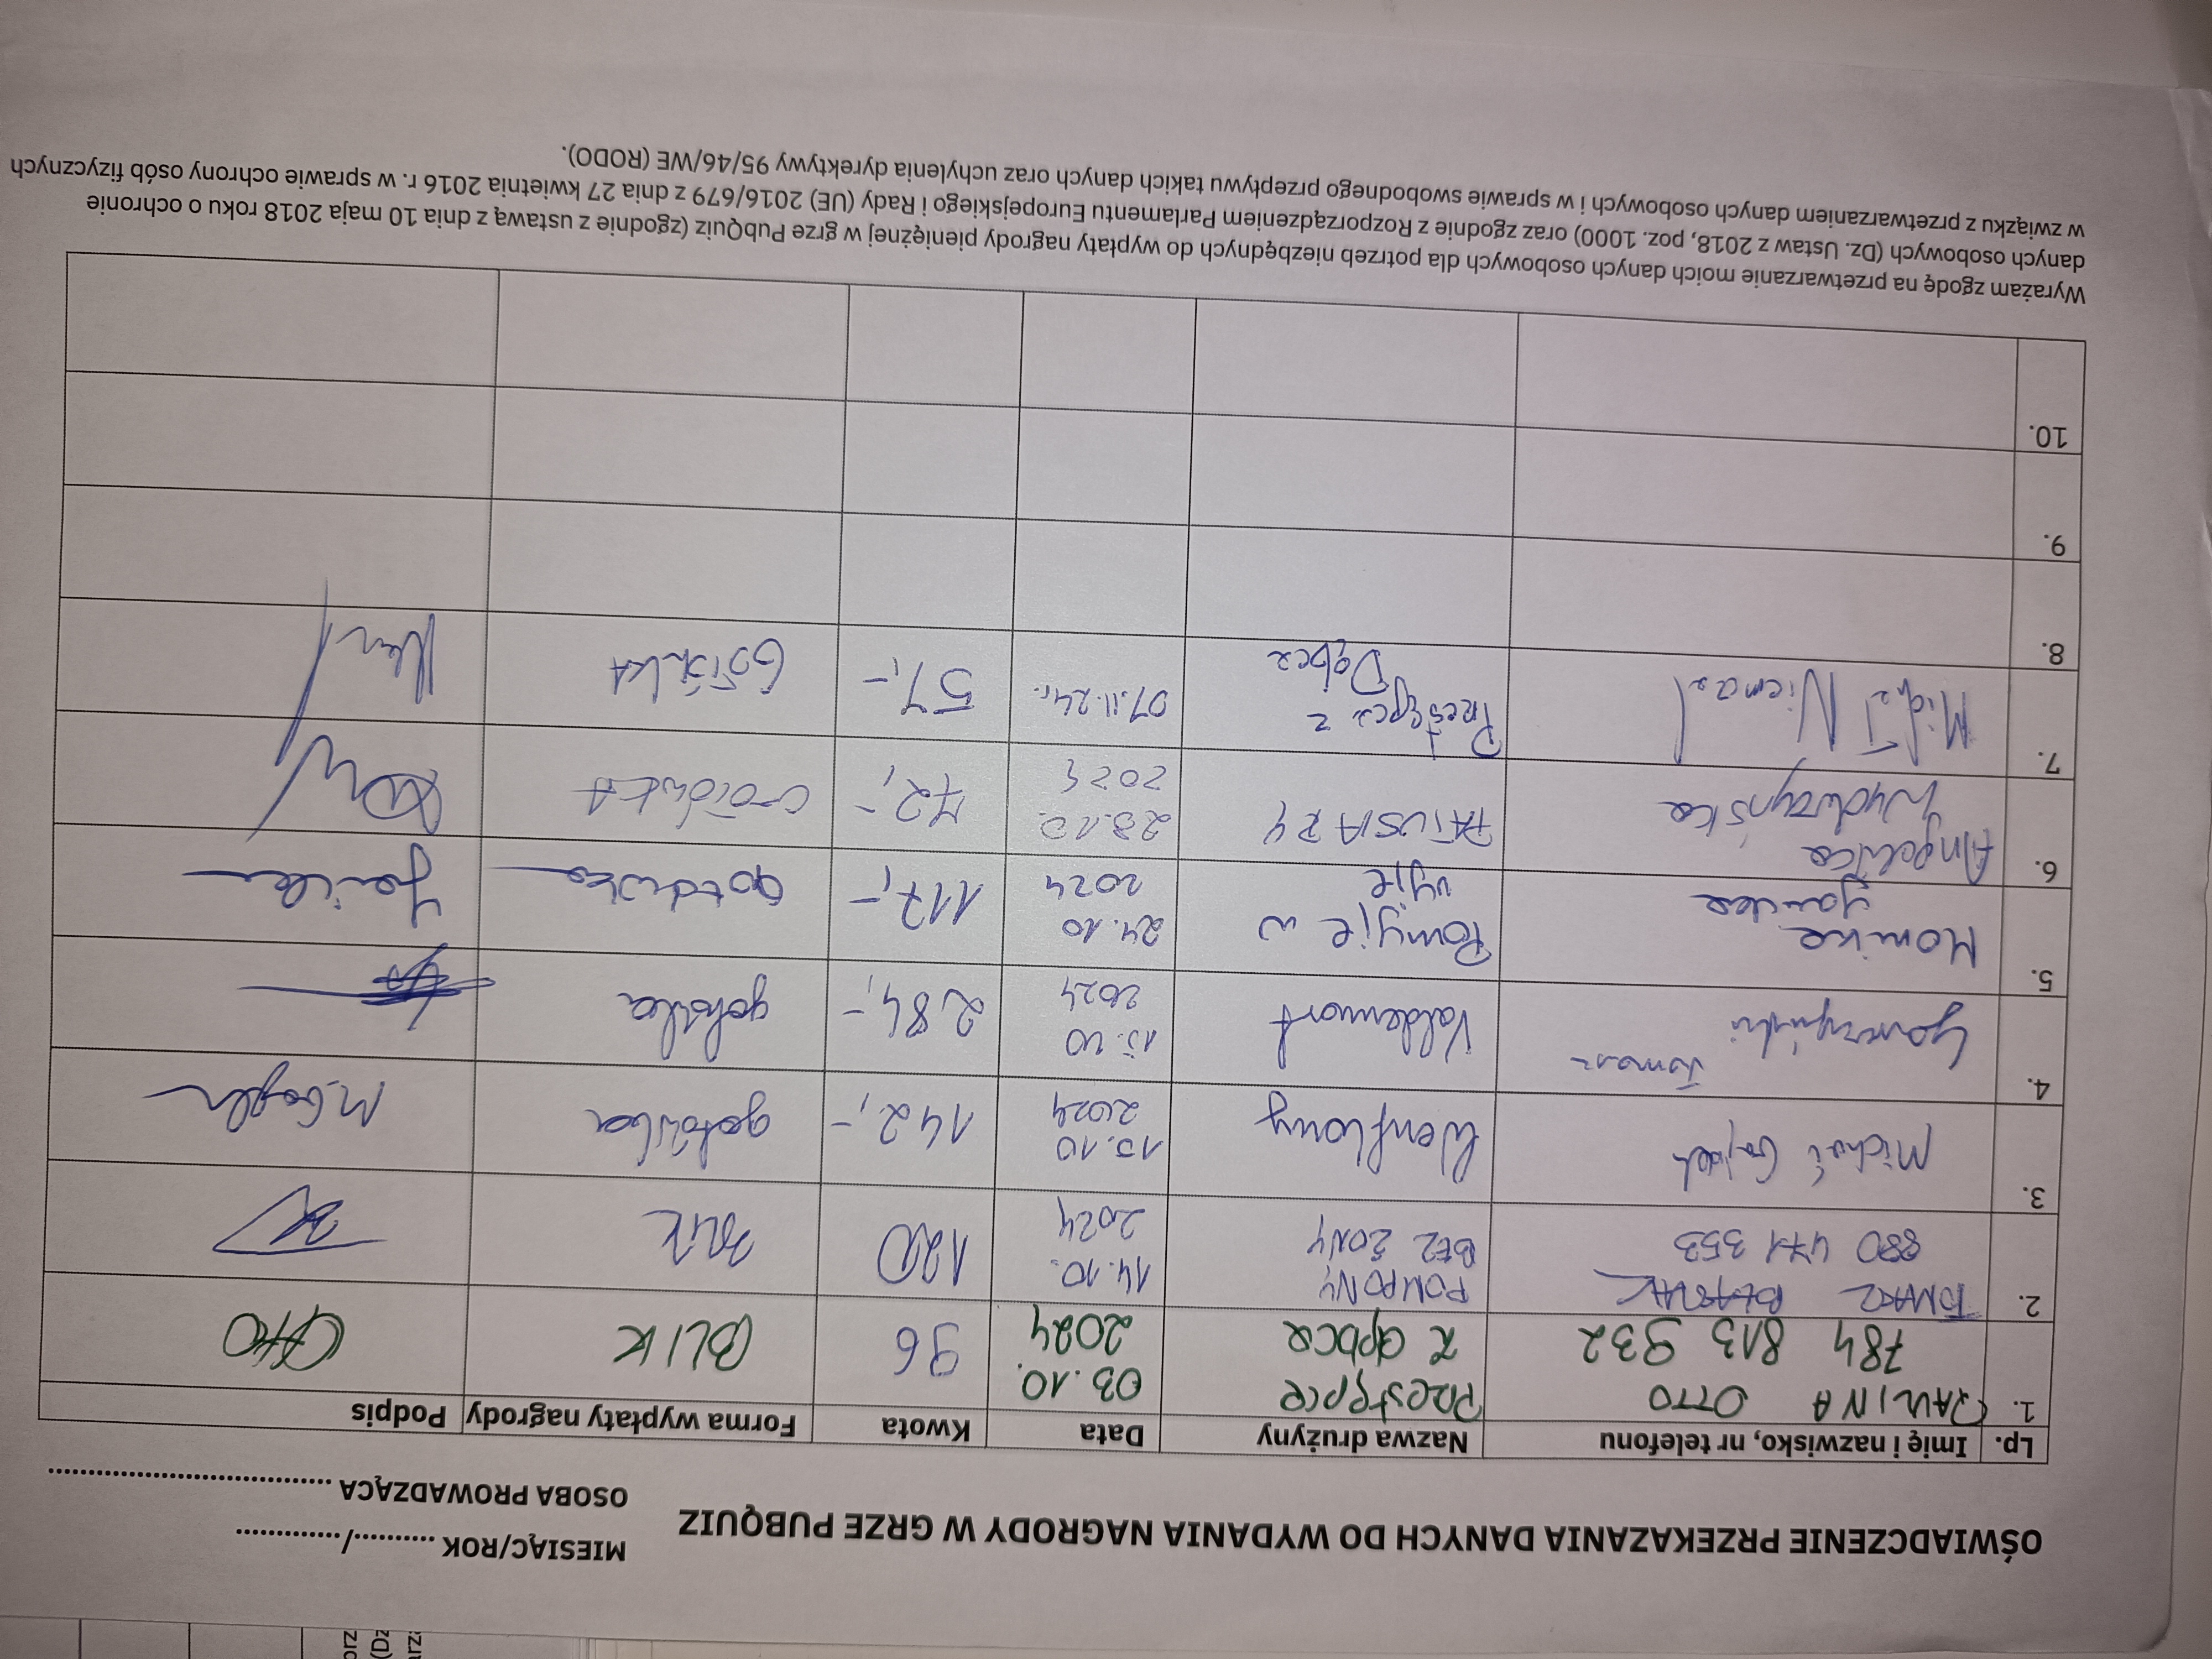 OŚWIADCZENIE PRZEKAZANIA DANYCH DO WYDANIA NAGRODY W GRZE PUBQUIZ
MIESIĄC/ROK .........../..............
OSOBA PROWADZĄCA ....................................
Lp. Imię i nazwisko, nr telefonu Nazwa drużyny Data Kwota Forma wypłaty nagrody Podpis
1. PAULINA OTTO 784 813 932 Przestępce z Dąbcza 03.10. 2024 96 BLIK Otto
2. TOMASZ 880 471 353 POMPONY BEZ ŻONY 14.10. 2024 120 BLIK
3. Michał Gajdek Wenflony 15.10 2024 142,- gotówka
4. Tomasz Valdemort 15.10 2024 284,- gotówka
5. Monika Pomyje w ryje 24.10 2024 117,- gotówka
6. Angelika PATUSIARY 28.10. 2024 72,- GOTÓWKA
7. Michał Niemaal Przestępcz z Dąbcz 07.11.24r. 57,- GOTÓWKA
8.
9.
10.
Wyrażam zgodę na przetwarzanie moich danych osobowych dla potrzeb niezbędnych do wypłaty nagrody pieniężnej w grze PubQuiz (zgodnie z ustawą z dnia 10 maja 2018 roku o ochronie
danych osobowych (Dz. Ustaw z 2018, poz. 1000) oraz zgodnie z Rozporządzeniem Parlamentu Europejskiego i Rady (UE) 2016/679 z dnia 27 kwietnia 2016 r. w sprawie ochrony osób fizycznych
w związku z przetwarzaniem danych osobowych i w sprawie swobodnego przepływu takich danych oraz uchylenia dyrektywy 95/46/WE (RODO).